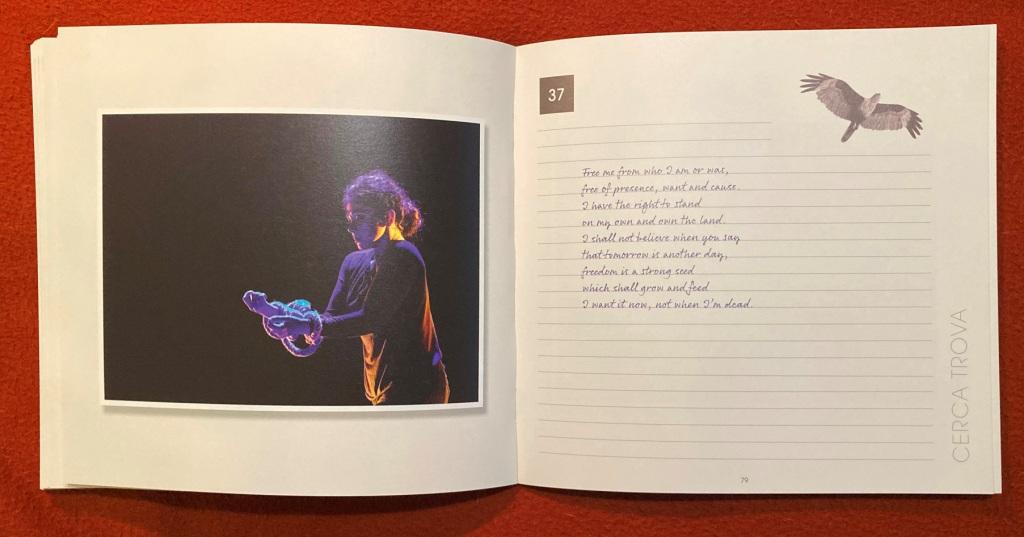 37
Free me from who I am or was,
free of presence, want and cause.
I have the right to stand
on my own and own the land.
I shall not believe when you say
that tomorrow is another day,
freedom is a strong seed
which shall grow and feed
I want it now, not when I'm dead.
CERCA TROVA
79